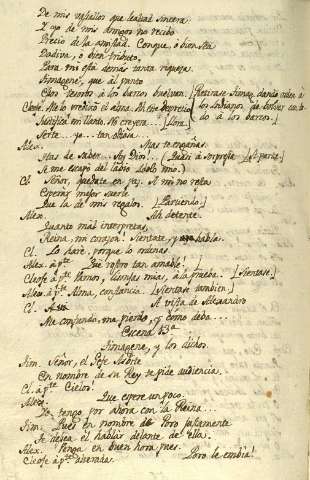 De mis vasallos que lealtad sincera
Y yo de mis Amigos no recibo
Precio de la amistad. Conque, ó bien sea
Dadiva, ó bien tributo,
Para mi está demás tanta riqueza.
Timagene, que al punto
Con tesoro a los barcos buelvan. [Retirase Timag. dando orden á
Cleofe. Me lo predixo el alma. Mi tive desprecio los Indianos que buelvan con todo
Justifica mi llanto. No creyera... [Llora. á los barcos.]
Serte... ya... tan odiosa...
Alex. Mas te engañas.
Has de saber... Soy Dios!.. (Quasi á impresa [A parte.]
Se me escapó del labio Idolo mio.)
Cl. Señor, quedate en paz. A mi no resta
Esperar mejor suerte
Que la de mis regalos. [Partiendo.]
Alex. Ah detente.
Quanto mal interpretas,
Reina, mi corazon! Sientate, y habla.
Cl. Lo haré, porque lo ordenas.
Alex. á pte. Que rostro tan amable!
Cleofe á pte. Vamos, ideas mias, á la prueba. [Sientase.]
Alex. á pte. Alma, constancia. [Sientase tambien.]
Cl. A vista de Alexandro
Me confundo, me pierdo, y cómo deba...
Escena 13ª
Timagene, y los dichos.
Tim. Señor, el Gefe Asbite
En nombre de su Rey te pide audiencia.
Cl. á pte. Cielos!
Alex. Que espere un poco.
Te tengo por ahora con la Reina...
Tim. Pues en nombre de Poro justamente
Se desea el hablar delante de ella.
Alex. Venga en buen hora pues.
Cleofe á pte. alterada. Poro le embia!